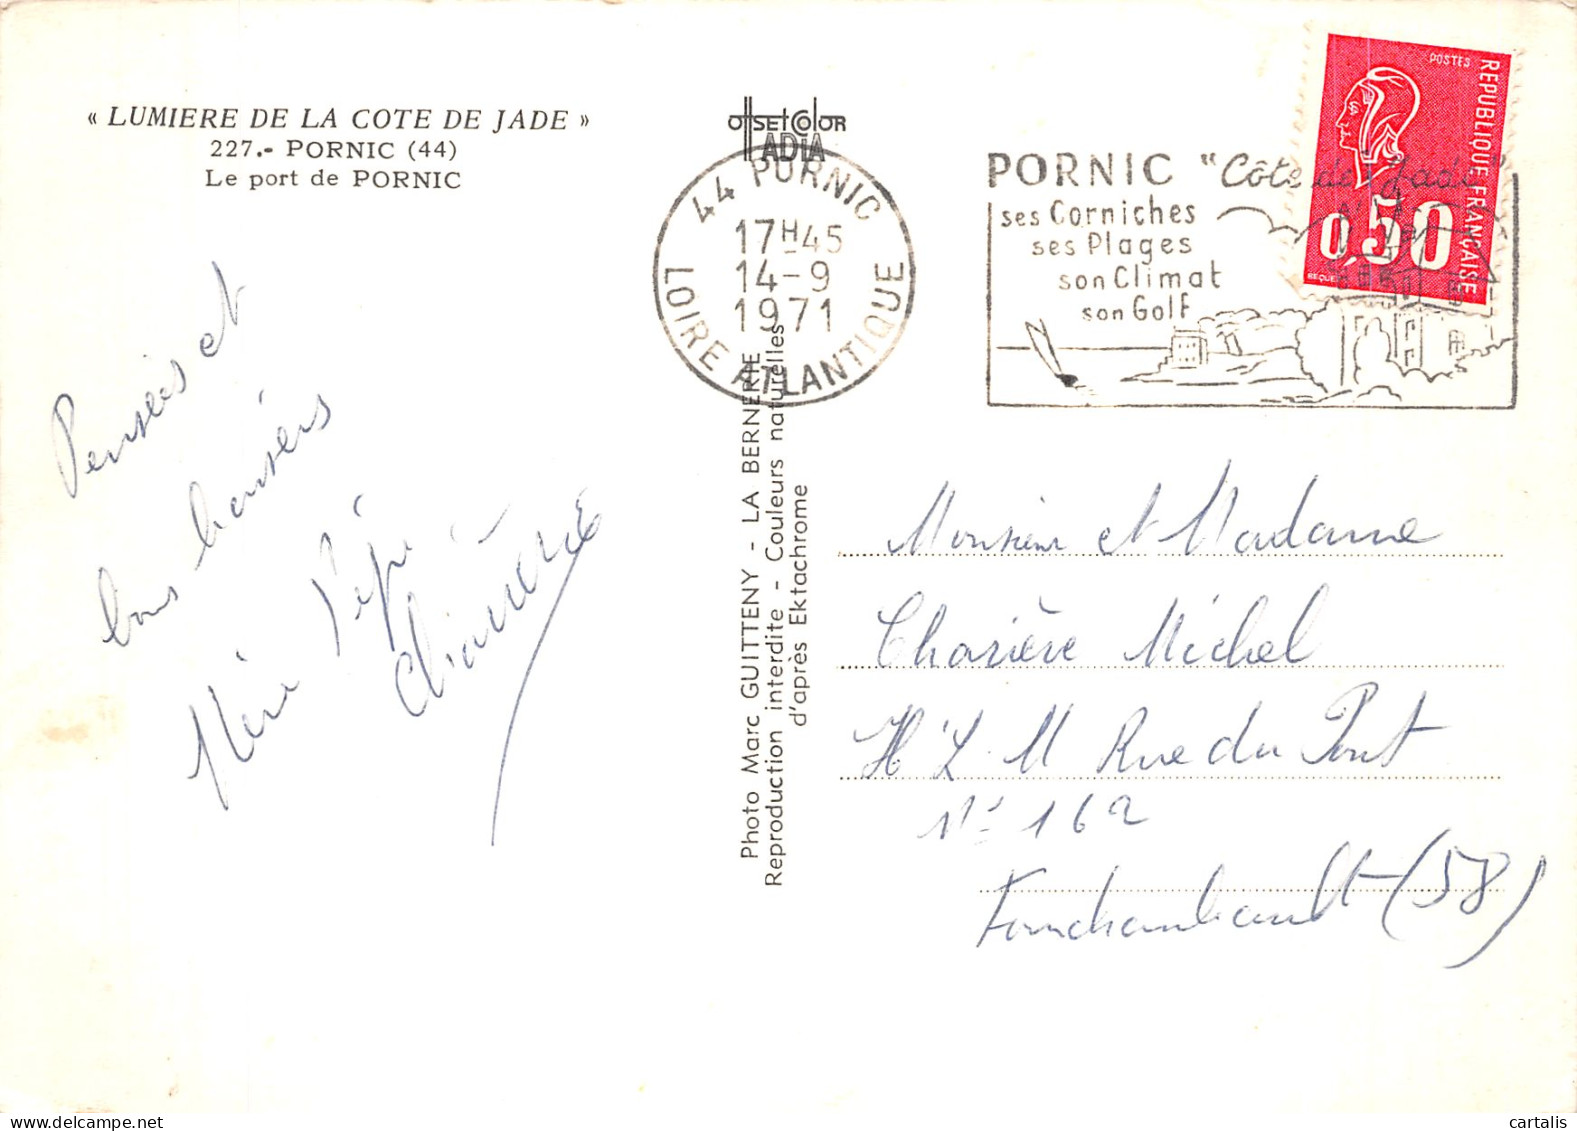 « LUMIERE DE LA COTE DE JADE »
227.- PORNIC (44)
Le port de PORNIC
OffSEt COlOR
ADIA
44 PORNIC
17H45
14-9
1971
LOIRE ATLANTIQUE
PORNIC "Côte de Jade"
ses Corniches
ses Plages
son Climat
son Golf
POSTES
REPUBLIQUE FRANÇAISE
0,50
BEQUET
Pensées et
bons baisers
Mère Pépé
Charière
Photo Marc GUITTENY - LA BERNERIE
Reproduction interdite - Couleurs naturelles
d'après Ektachrome
Monsieur et Madame
Charière Michel
H.L.M Rue du Pont
N° 162
Fourchambault (58)
cartalis
www.delcampe.net